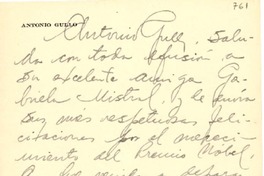 761
ANTONIO GULLO
Antonio Gullo, Salu-
da con toda efusión a
su excelente amiga Ga-
briela Mistral, y le envía
sus más respetuosas feli-
citaciones por el mereci-
miento del Premio Nobel.